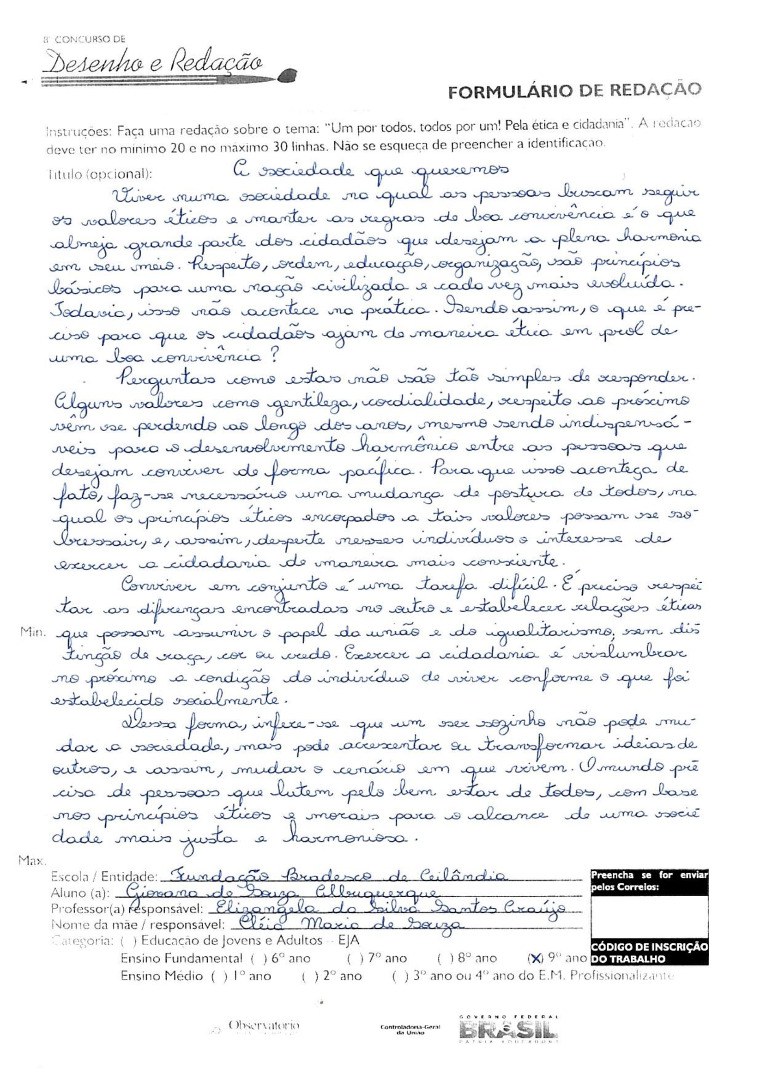 8º CONCURSO DE
Desenho e Redação
FORMULÁRIO DE REDAÇÃO
Instruções: Faça uma redação sobre o tema: "Um por todos, todos por um! Pela ética e cidadania". A redação
deve ter no mínimo 20 e no máximo 30 linhas. Não se esqueça de preencher a identificação.
Título (opcional): A sociedade que queremos
Viver numa sociedade na qual as pessoas buscam seguir
os valores éticos e manter as regras de boa convivência é o que
almeja grande parte dos cidadãos que desejam a plena harmonia
em seu meio. Respeito, ordem, educação, organização, são princípios
básicos para uma nação civilizada e cada vez mais evoluída.
Todavia, isso não acontece na prática. Sendo assim, o que é pre-
ciso para que os cidadãos ajam de maneira ética em prol de
uma boa convivência?
Perguntas como estas não são tão simples de responder.
Alguns valores como gentileza, cordialidade, respeito ao próximo
vêm se perdendo ao longo dos anos, mesmo sendo indispensá-
veis para o desenvolvimento harmônico entre as pessoas que
desejam conviver de forma pacífica. Para que isso aconteça de
fato, faz-se necessário uma mudança de postura de todos, na
qual os princípios éticos encorpados a tais valores possam se so-
bressair, e, assim, desperte nesses indivíduos o interesse de
exercer a cidadania de maneira mais consciente.
Conviver em conjunto é uma tarefa difícil. É preciso respei
tar as diferenças encontradas no outro e estabelecer relações éticas
Min. que possam assumir o papel da união e do igualitarismo, sem dis
tinção de raça, cor ou credo. Exercer a cidadania é vislumbrar
no próximo a condição do indivíduo de viver conforme o que foi
estabelecido socialmente.
Dessa forma, infere-se que um ser sozinho não pode mu-
dar a sociedade, mas pode acrescentar ou transformar ideias de
outros, e assim, mudar o cenário em que vivem. O mundo pre
cisa de pessoas que lutem pelo bem estar de todos, com base
nos princípios éticos e morais para o alcance de uma socie
dade mais justa e harmoniosa.
Max.
Escola / Entidade: Fundação Bradesco de Ceilândia
Aluno (a): Giovana de Souza Albuquerque
Professor(a) responsável: Elizangela da Silva Santos Araújo
Nome da mãe / responsável: Cléia Maria de Souza
Categoria: ( ) Educação de Jovens e Adultos - EJA
Ensino Fundamental ( ) 6º ano ( ) 7º ano ( ) 8º ano (X) 9º ano
Ensino Médio ( ) 1º ano ( ) 2º ano ( ) 3º ou 4º ano do E.M. Profissionalizante
Preencha se for enviar
pelos Correios:
CÓDIGO DE INSCRIÇÃO
DO TRABALHO
Observatório
Controladoria-Geral
da União
GOVERNO FEDERAL
BRASIL
PÁTRIA EDUCADORA